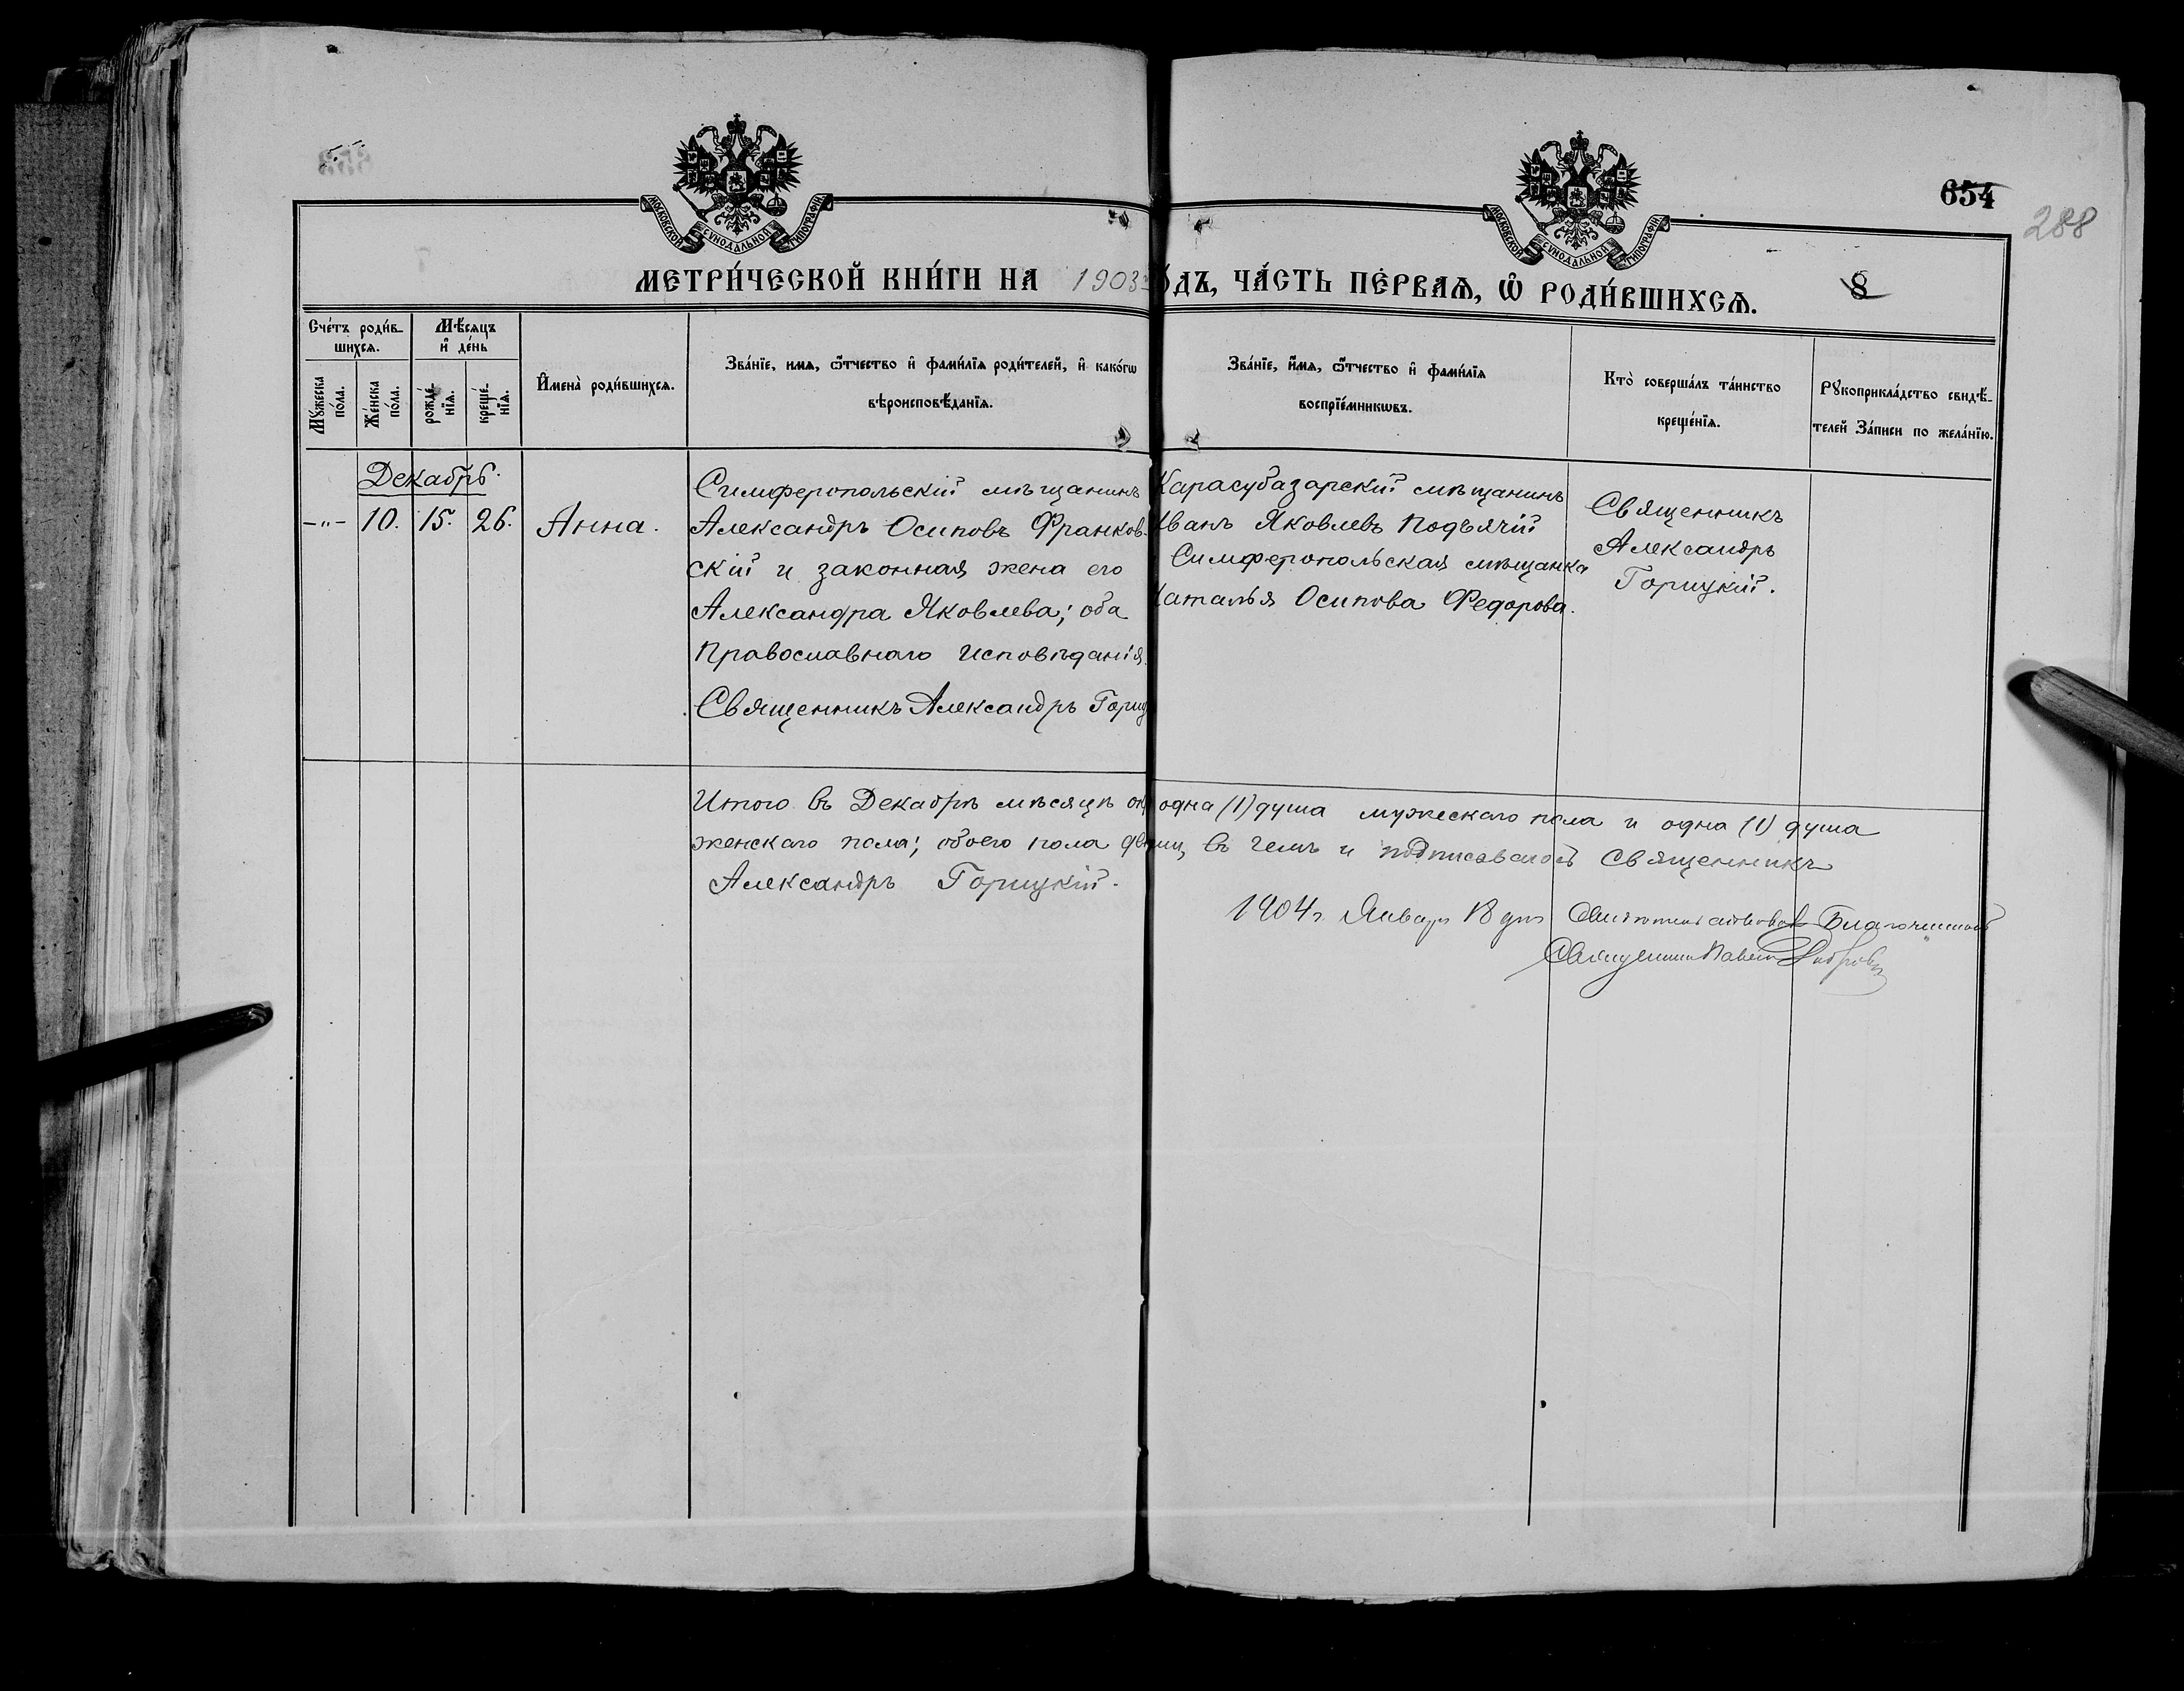 654
288
МОСКОВСКОЙ СѴНОДАЛЬНОЙ ТИПОГРАФІИ
МОСКОВСКОЙ СѴНОДАЛЬНОЙ ТИПОГРАФІИ
МЕТРИ́ЧЕСКОЙ КНИ́ГИ НА 1903 ГО́ДЪ, ЧА́СТЬ ПЕ́РВАѦ, Ѽ РОДИ́ВШИХСѦ.
8
Сче́тъ роди́в-
шихсѧ.
Мꙋ́жеска по́ла.
Же́нска по́ла.
Мѣ́сяцъ
и҆ де́нь
рожде́-нїѧ.
креще́-нїѧ.
И҆мена̀ роди́вшихсѧ.
Зва́нїе, имѧ, ѻ҆́тчество и҆ фами́лїѧ роди́телей, и҆ како́гѡ
вѣроисповѣ́данїѧ.
Зва́нїе, и҆́мѧ, ѻ҆́тчество и҆ фами́лїѧ
воспрїе́мникѡвъ.
Кто̀ соверша́лъ та́инство
креще́нїѧ.
Рꙋкоприкла́дство свидѣ́-
телей За́писи по жела́нїю.
Декабрь.
-„- 10. 15. 26. Анна.
Симферопольскій мѣщанинъ
Александръ Осиповъ Франков-
скій и законная жена его
Александра Яковлева; оба
Православнаго исповѣданія.
Священникъ Александръ
Карасубазарскій мѣщанинъ
Иванъ Яковлевъ Подъячій
Симферопольская мѣщанка
Наталья Осипова Федорова.
Священникъ
Александръ
Горицкій.
Итого въ Декабрѣ мѣсяцѣ одна (1) душа мужескаго пола и одна (1) душа
женскаго пола; обоего пола въ чемъ и подписываюсь Священникъ
Александръ Горицкій.
1904 г. Января 18 дня Благочинный
Священникъ Павелъ